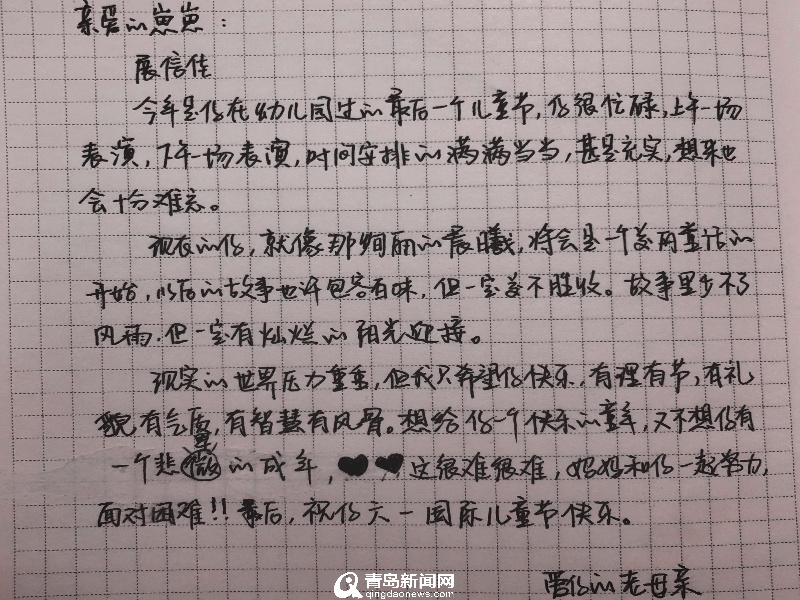 亲爱的崽崽：
展信佳
今年是你在幼儿园过的最后一个儿童节，你很忙碌，上午一场
表演，下午一场表演，时间安排的满满当当，甚是充实，想来也
会十分难忘。
现在的你，就像那绚丽的晨曦，将会是一个美丽童话的
开始，以后的故事也许包容百味，但一定美不胜收。故事里少不了
风雨，但一定有灿烂的阳光迎接。
现实的世界压力重重，但我只希望你快乐，有理有节，有礼
貌有气质，有智慧有风骨。想给你一个快乐的童年，又不想你有
一个悲的成年，这很难很难，妈妈和你一起努力，
面对困难！！最后，祝你六一国际儿童节快乐。
爱你的老母亲
青岛新闻网
qingdaonews.com